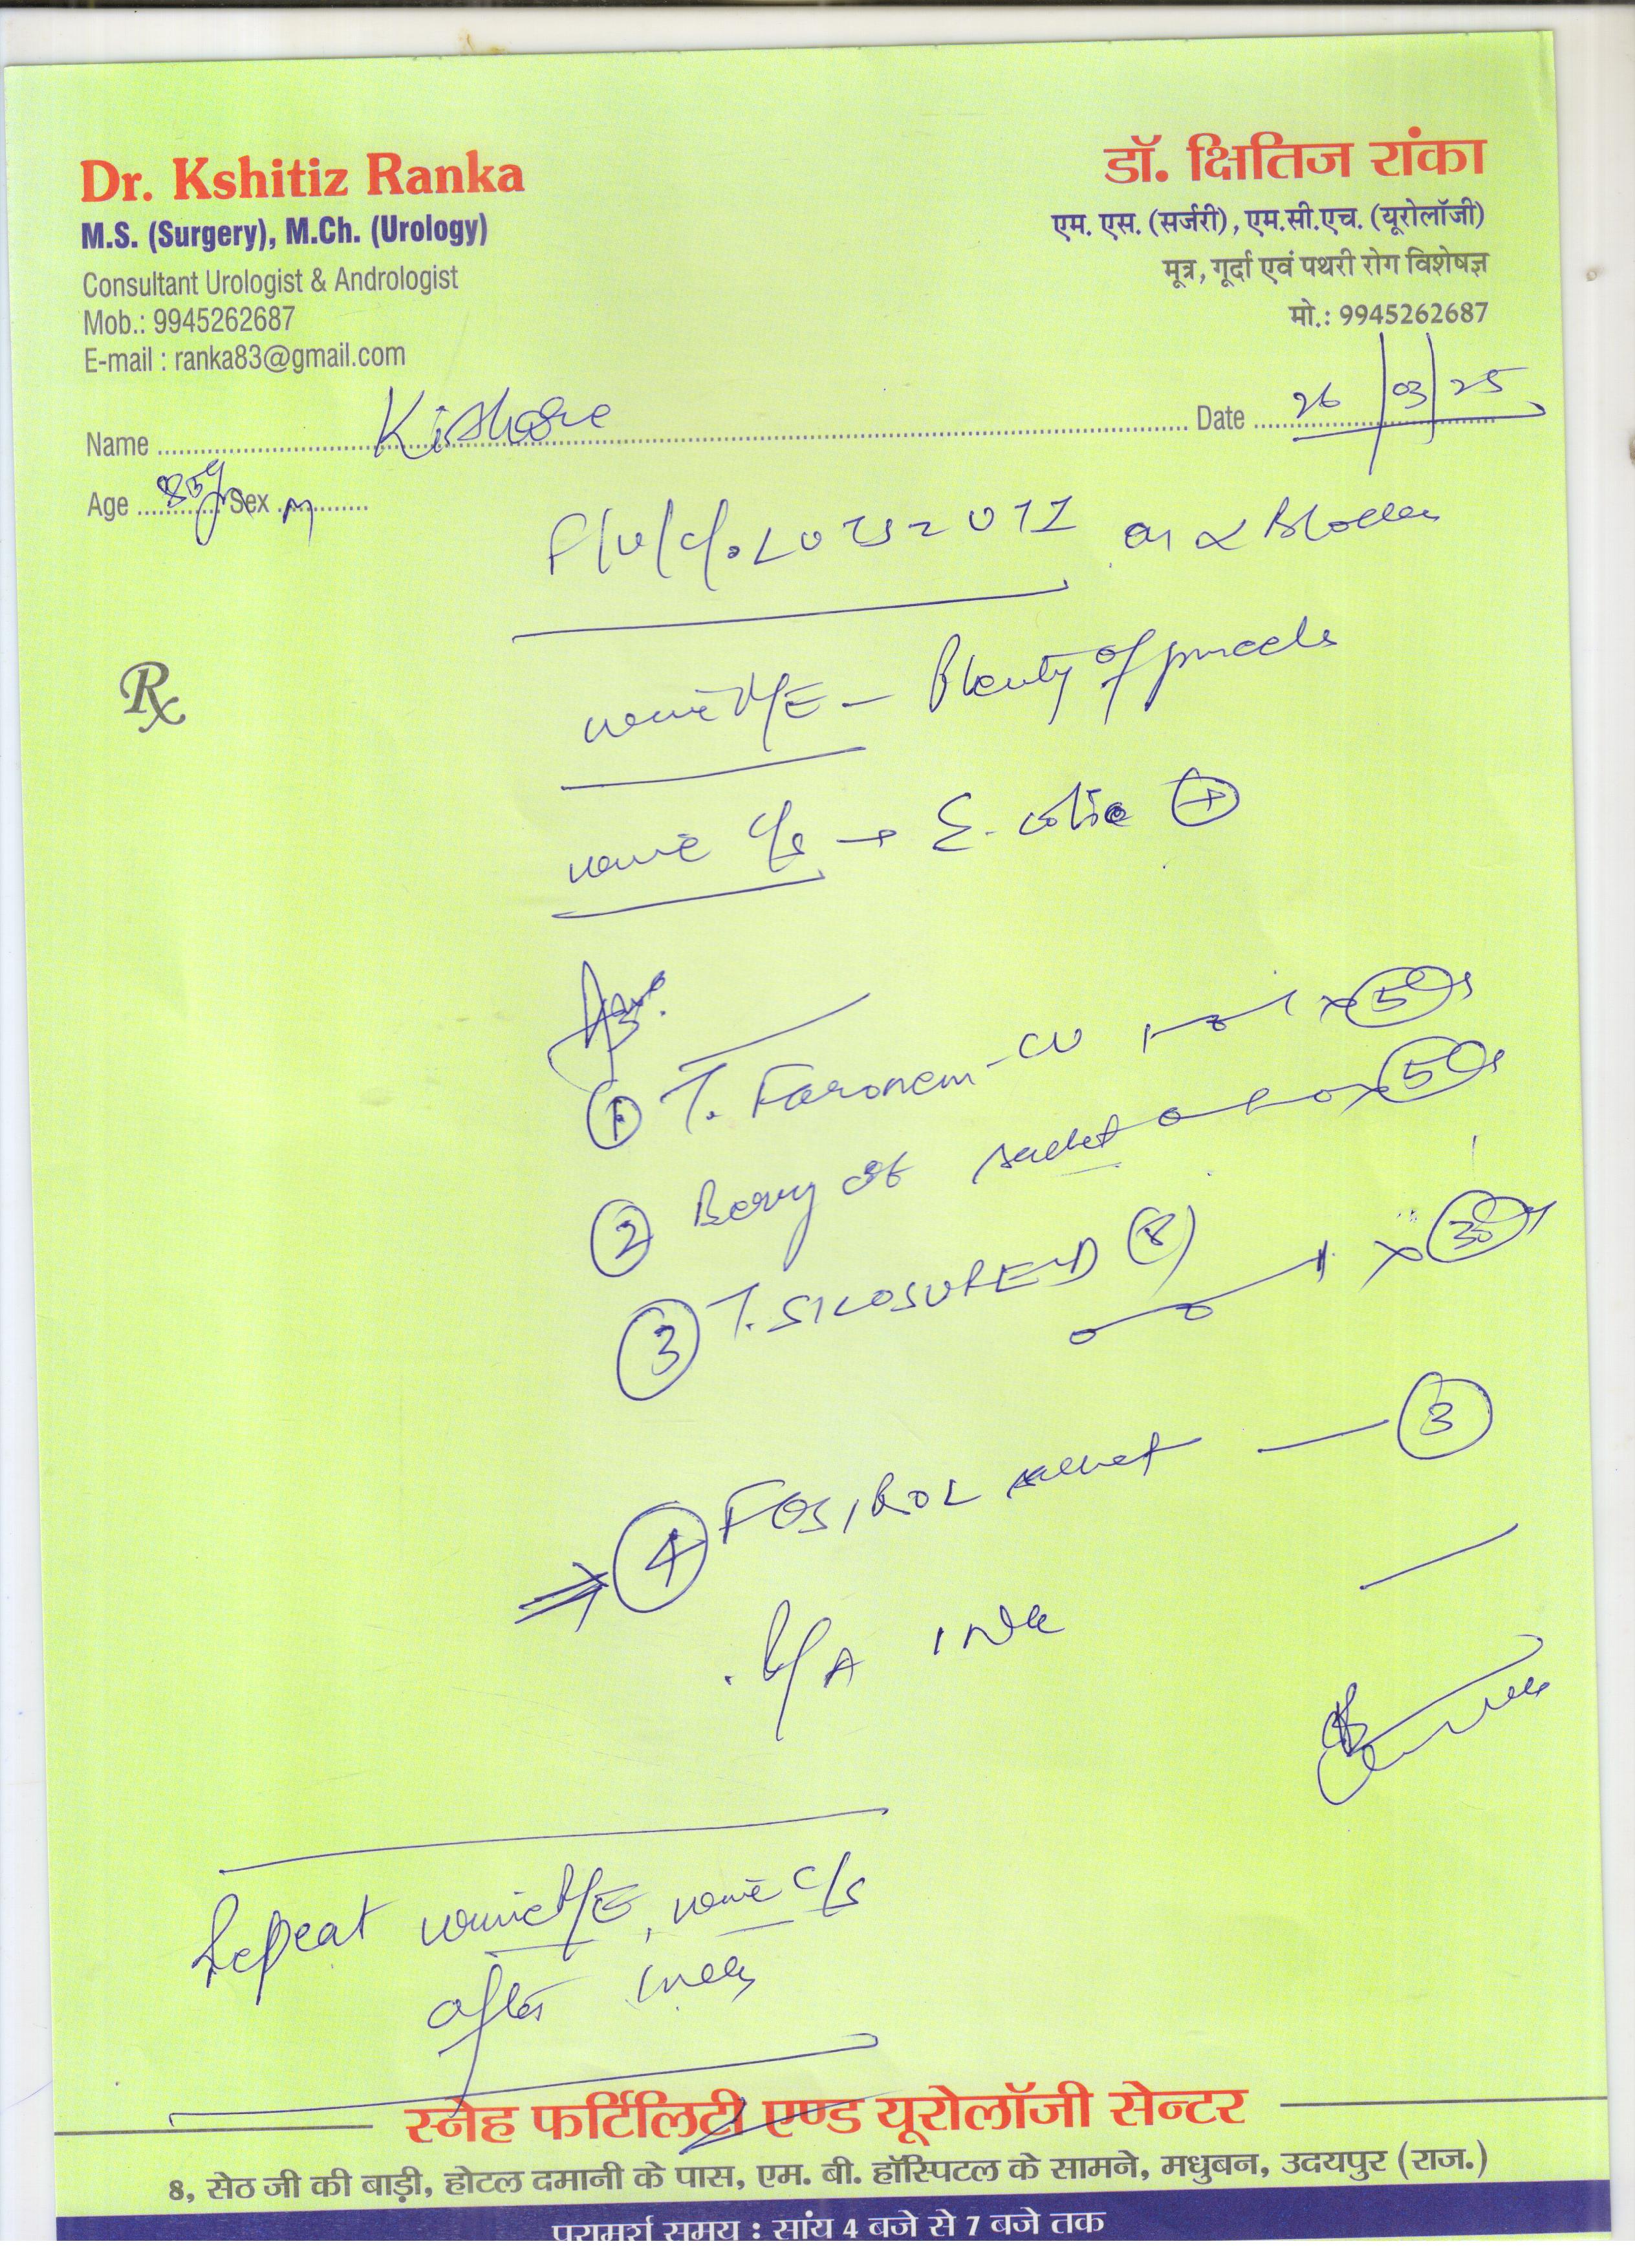 Dr. Kshitiz Ranka
M.S. (Surgery), M.Ch. (Urology)
Consultant Urologist & Andrologist
Mob.: 9945262687
E-mail : ranka83@gmail.com
डॉ. क्षितिज रांका
एम. एस. (सर्जरी), एम.सी.एच. (यूरोलॉजी)
मूत्र, गूर्दा एवं पथरी रोग विशेषज्ञ
मो.: 9945262687
Name Kishore Date 26/03/25
Age Sex M
on α Blocker
Rx
urine M/E - Plenty of puscells
urine C/s → E. colie +
Adv.
① T. Faronem-CU 1-0-1 x 5
② Berry sachet 0-1-0 x 5
③ T. SILOSURE D (8) 0-0-1 x 30
④ FOSIROL sachet - 3
R/A
Repeat urine M/E, urine C/s
after
स्नेह फर्टिलिटी एण्ड यूरोलॉजी सेन्टर
8, सेठ जी की बाड़ी, होटल दमानी के पास, एम. बी. हॉस्पिटल के सामने, मधुबन, उदयपुर (राज.)
परामर्श समय : सांय 4 बजे से 7 बजे तक